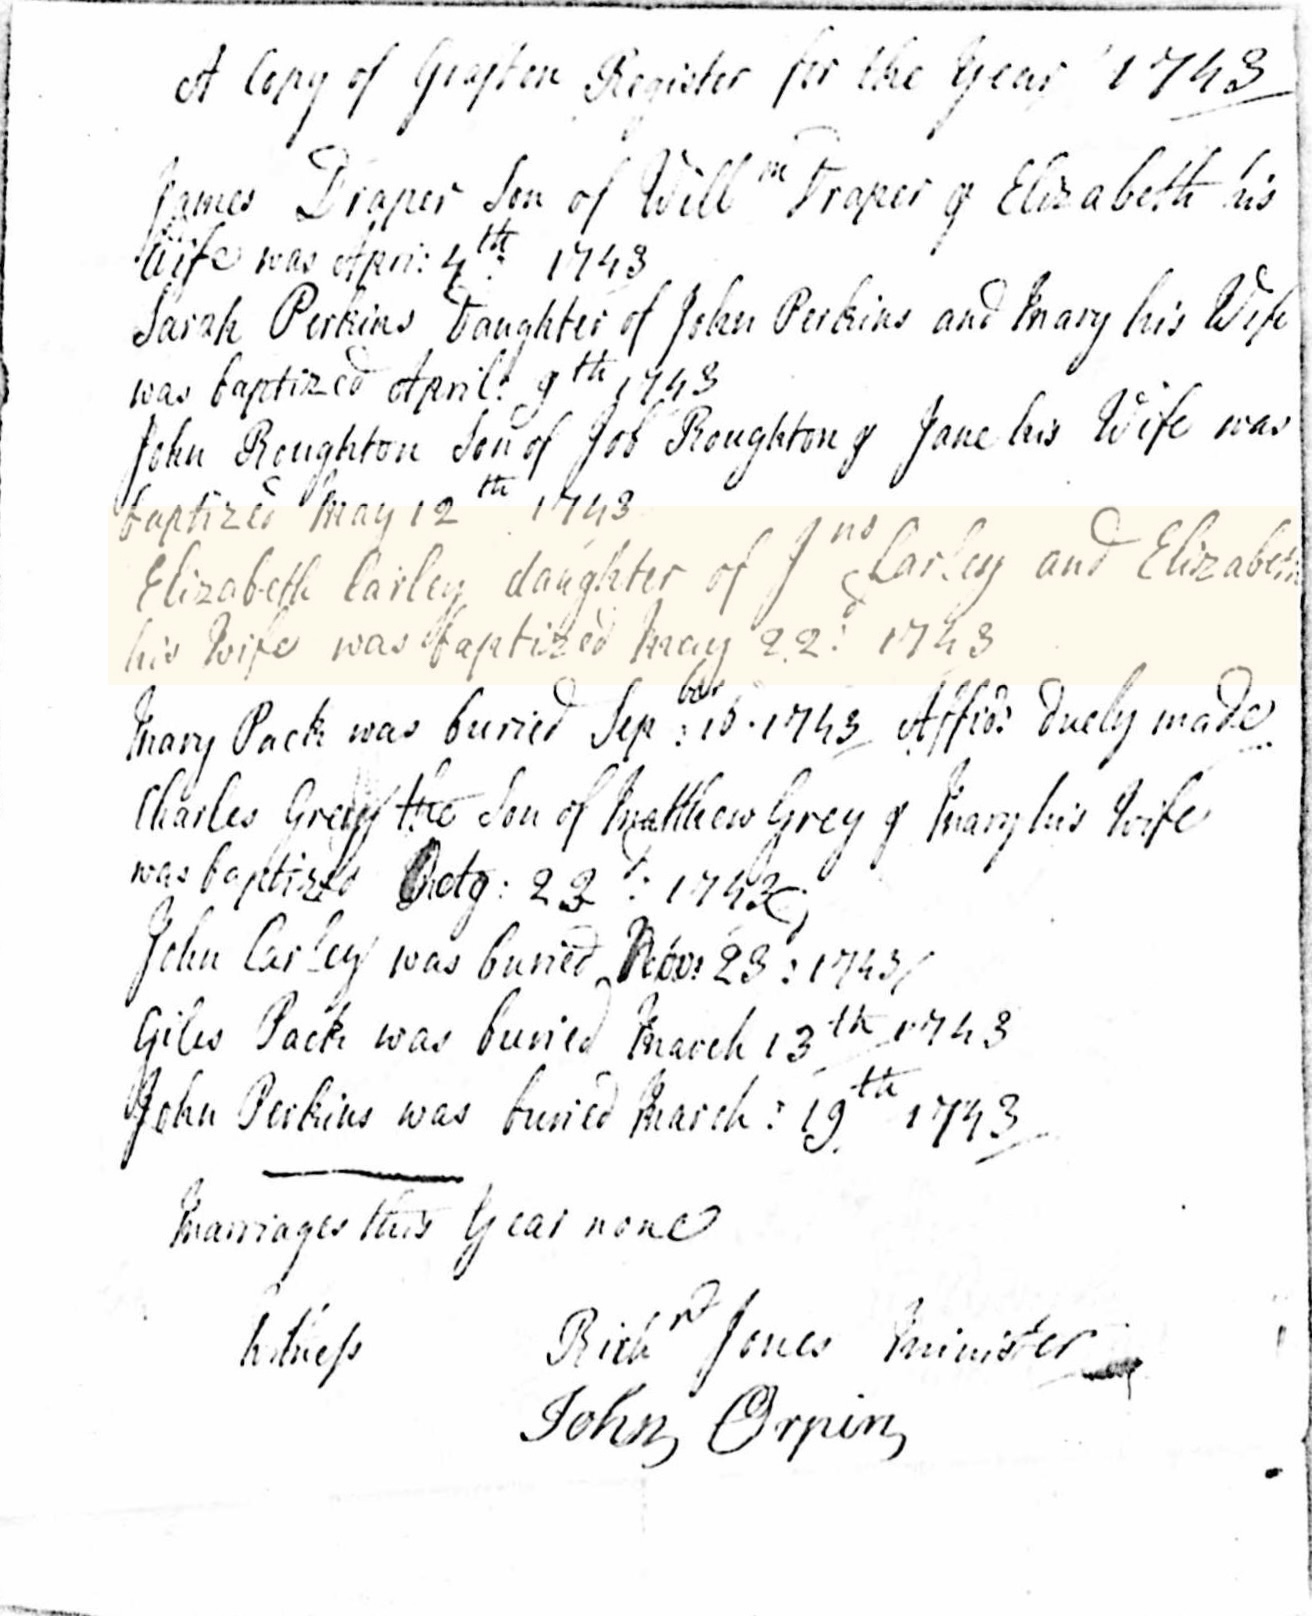 A Copy of Grafton Register for the Year 1743
James Draper Son of Will^m Draper & Elizabeth his
Wife was Apri: 4th: 1743
Sarah Perkins Daughter of John Perkins and Mary his Wife
was baptized April: 9th 1743
John Roughton Son of Job Roughton & Jane his Wife was
baptized May 12th 1743
Elizabeth Carley daughter of Jno Carley and Elizabeth
his Wife was baptized May 22d: 1743
Mary Pack was buried Sepber: 16. 1743 Affid: duely made
Charles Grey the Son of Matthew Grey & Mary his Wife
was baptized 23d: 1743
John Carley was buried Nov: 23d: 1743
Giles Pack was buried March 13th 1743
John Perkins was buried March: 19th 1743
Marriages this Year none
Witness Richrd Jones Minister
John Orpin